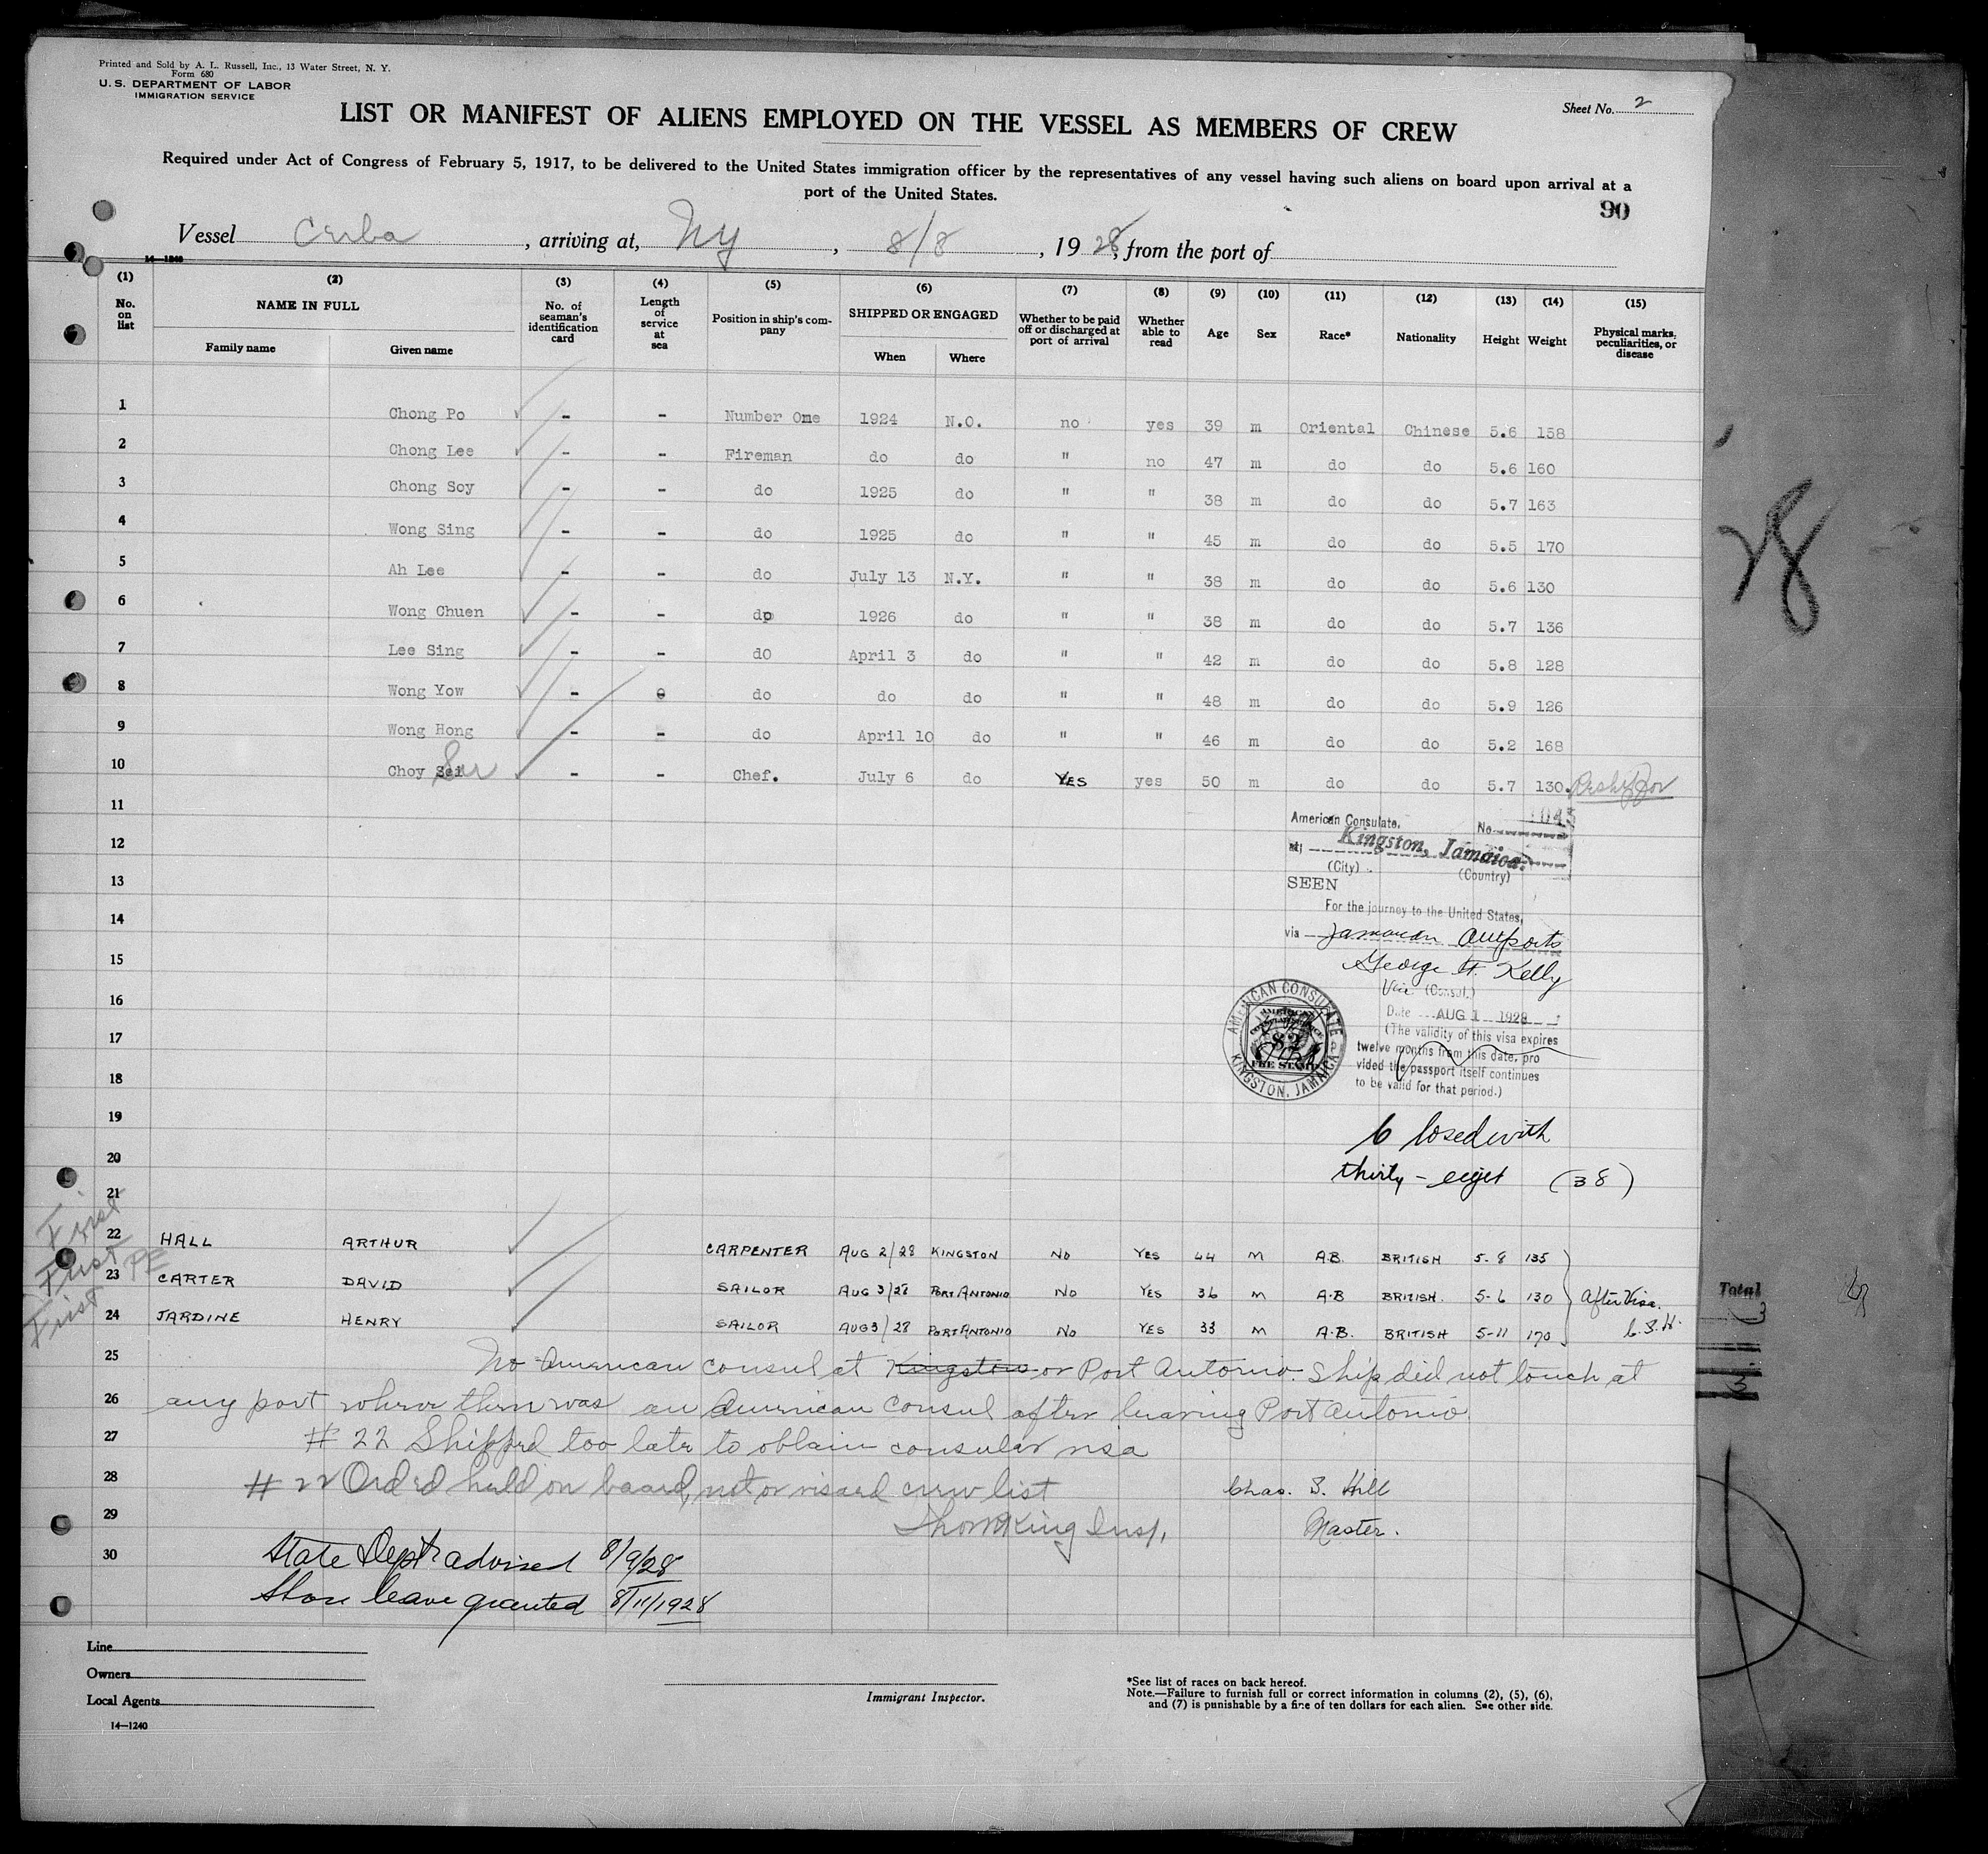 Printed and Sold by A. L. Russell, Inc., 13 Water Street, N. Y.
Form 680
U. S. DEPARTMENT OF LABOR
IMMIGRATION SERVICE
Sheet No. 2
LIST OR MANIFEST OF ALIENS EMPLOYED ON THE VESSEL AS MEMBERS OF CREW
Required under Act of Congress of February 5, 1917, to be delivered to the United States immigration officer by the representatives of any vessel having such aliens on board upon arrival at a
port of the United States.
90
Vessel Ceiba, arriving at, NY, 8/8, 1928, from the port of
14—1240
(1) (2) (3) (4) (5) (6) (7) (8) (9) (10) (11) (12) (13) (14) (15)
No. on list NAME IN FULL No. of seaman's identification card Length of service at sea Position in ship's company SHIPPED OR ENGAGED Whether to be paid off or discharged at port of arrival Whether able to read Age Sex Race* Nationality Height Weight Physical marks, peculiarities, or disease
Family name Given name When Where
1 Chong Po - - Number One 1924 N.O. no yes 39 m Oriental Chinese 5.6 158
2 Chong Lee - - Fireman do do " no 47 m do do 5.6 160
3 Chong Soy - - do 1925 do " " 38 m do do 5.7 163
4 Wong Sing - - do 1925 do " " 45 m do do 5.5 170
5 Ah Lee - - do July 13 N.Y. " " 38 m do do 5.6 130
6 Wong Chuen - - do 1926 do " " 38 m do do 5.7 136
7 Lee Sing - - do April 3 do " " 42 m do do 5.8 128
8 Wong Yow - - do do do " " 48 m do do 5.9 126
9 Wong Hong - - do April 10 do " " 46 m do do 5.2 168
10 Choy - - Chef. July 6 do YES yes 50 m do do 5.7 130.
11
American Consulate, No. 1043
12
at Kingston, Jamaica.
(City) (Country)
13
SEEN
14
For the journey to the United States,
via Jamaican Outports
15
George H. Kelly
16
Vice (Consul.)
Date AUG 1 1928
AMERICAN CONSULATE
KINGSTON, JAMAICA
FEE STAMP
17
(The validity of this visa expires
twelve months from this date, pro
vided the passport itself continues
18
to be valid for that period.)
19
Closed with
20
thirty - eight (38)
21
First
22 HALL ARTHUR CARPENTER AUG 2/28 KINGSTON NO YES 44 M A.B. BRITISH 5-8 135
First PE
23 CARTER DAVID SAILOR AUG 3/28 PORT ANTONIO NO YES 36 M A.B BRITISH. 5-6 130 After Visa.
First
24 JARDINE HENRY SAILOR AUG 3/28 PORT ANTONIO NO YES 33 M A.B. BRITISH 5-11 170 C.S.H.
25 No American consul at Kingston or Port Antonio. Ship did not touch at
26 any port where there was an American Consul after leaving Port Antonio.
27 # 22 Shipped too late to obtain consular visa
28 # 22 Ord'd held on board, not on visaed crew list
Chas. S. Hill
29 King Insp.
Master.
30 State Dept advised 8/9/28
Shore leave granted 8/11/1928
Line
Owners
Local Agents
14—1240
Immigrant Inspector.
*See list of races on back hereof.
Note.—Failure to furnish full or correct information in columns (2), (5), (6),
and (7) is punishable by a fine of ten dollars for each alien. See other side.
28
Total
3
3